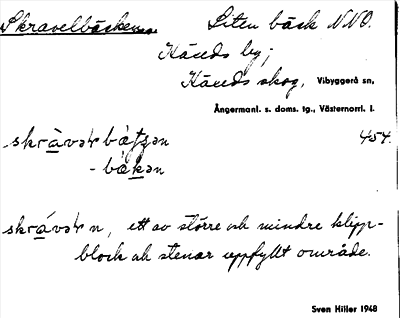 Skravelbäcken. Liten bäck NNO.
Häreds by;
Häreds skog, Vibyggerå sn,
Ångermanl. s. doms. tg., Västernorrl. l.
skràvəɫ bæ̀tʃən 454.
- bækən
skràvəɫ n, ett av större och mindre klipp-
block och stenar uppfyllt område.
Sven Hiller 1948